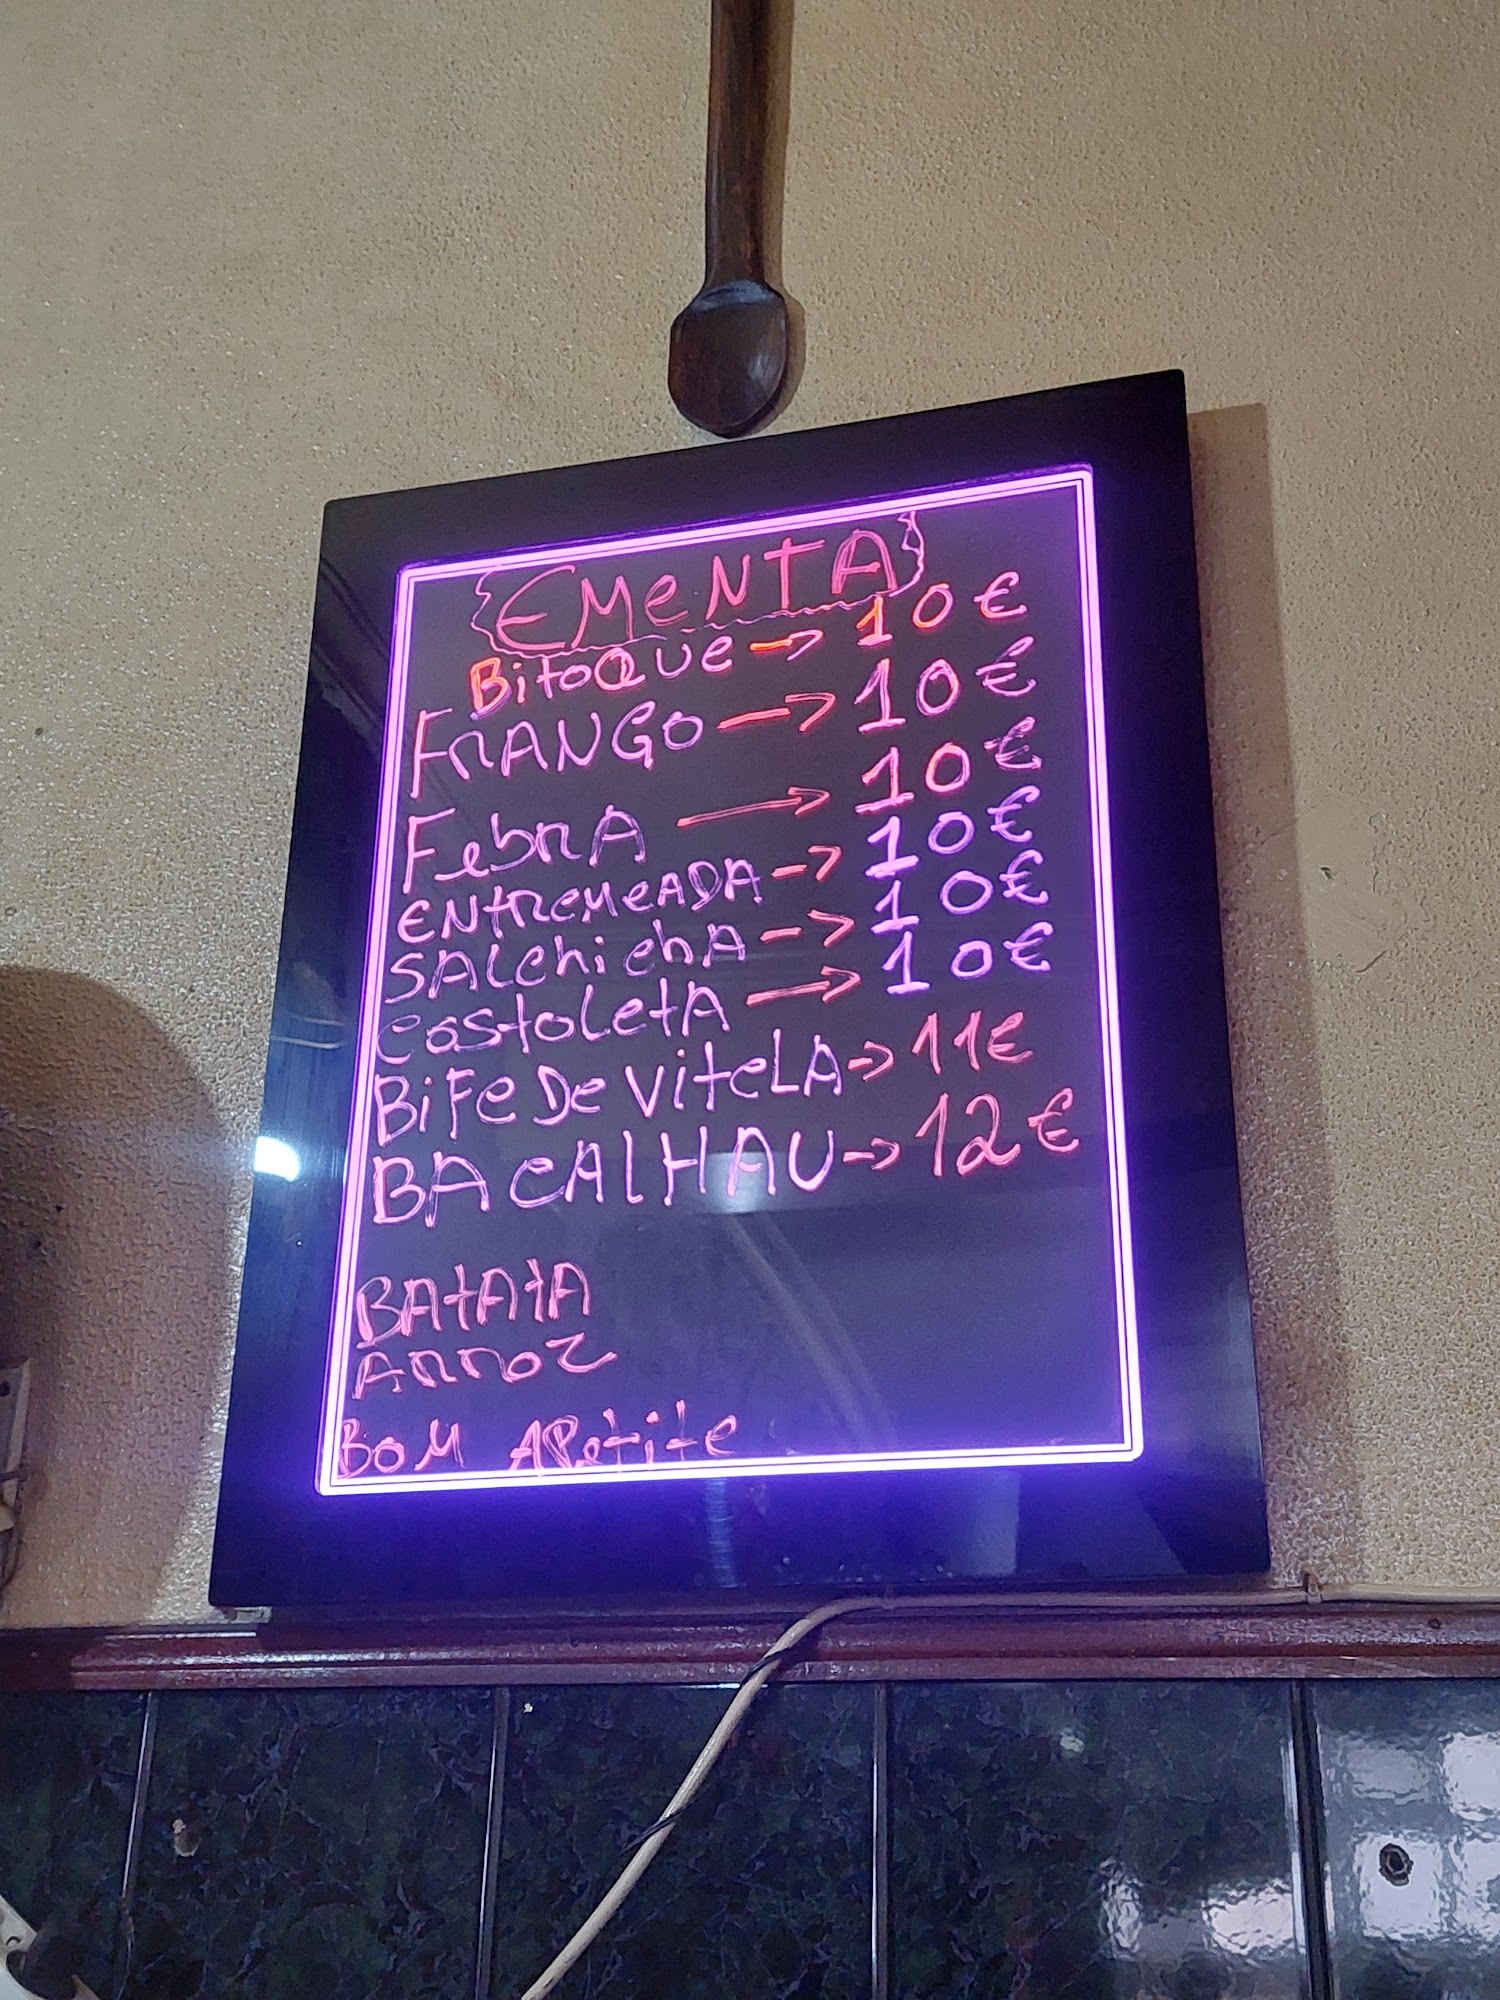 EMENTA
BitoQue → 10€
FRANGO → 10€
FebrA → 10€
ENtremeADA → 10€
SAlchichA → 10€
costoletA → 10€
BiFe De vitelA → 11€
BACALHAU → 12€
BAtAtA
Arroz
BOM APetite